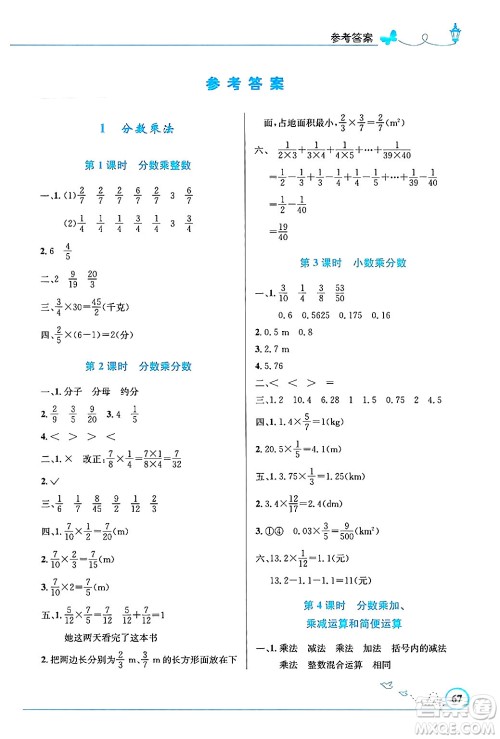 参考答案
参考答案
1 分数乘法
第1课时 分数乘整数
一、1.(1) 2/7 2/7 2/7 2/7 3 6/7
(2) 1/4 1/4 1/4 1/4 3 3/4
2.6 4/5
二、2/7 9/19 20/7
三、3/4×30=45/2(千克)
四、2/5×(6-1)=2(分)
第2课时 分数乘分数
一、1.分子 分母 约分
2.2/9 5/8 9/20 3.4 1/4
4.< > > <
二、1.× 改正:7/10×8/21=7×8/10×21=4/15
2.✓
三、1/6 1/8 8/45 9/20 1/12 2/9
四、1.7/10×1/2=7/20(m)
2.7/10×2/3=7/15(m)
3.7/10×2=7/5(m)
五、1.5/12 7/12 5/12 7/12
她这两天看完了这本书
2.把两边长分别为2/5 m和2/3 m的长方形面放在下
面,占地面积最小,2/5×2/3=4/15(m²)
六、1/2×3+1/3×4+1/4×5+…+1/39×40
=1/2-1/40
=19/40
第3课时 小数乘分数
一、1.3/10 1/2 1/8 53/50
0.6 0.5625 0.4 0.6
2.0.5 m 0.8
4.5.76
二、< = > <
三、1.2 0.81 2.4 0.9
四、1.1.4×5/7=1(kg)
2.20.5×1/5=4.1(m)
五、1.3.75×1/3=1.25(m)
2.3.4×12/17=2.4(m)
3.①④ 0.03×3/5=9/500(km²)
六、13.2×1/12=1.1(元)
13.2-1.1=12.1(元)
第4课时 分数乘加、
乘减运算和简便运算
一、1.乘法 减法 乘法 加法 括号内的减法
乘法 整数混合运算 相同
67